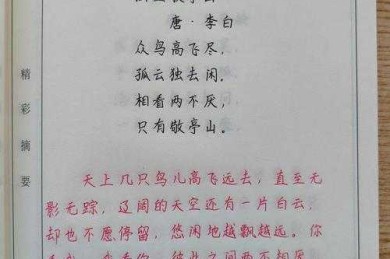 唐·李白
众鸟高飞尽，
孤云独去闲。
相看两不厌，
只有敬亭山。
精彩摘要
天上几只鸟儿高飞远去，直至无
影无踪，辽阔的天空还有一片白云，
却也不愿停留，悠闲地越飘越远。你